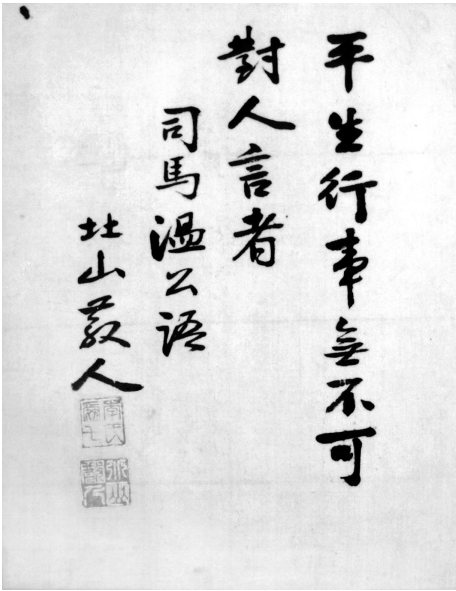 平生行事無不可
對人言者
司馬溫公語
北山散人